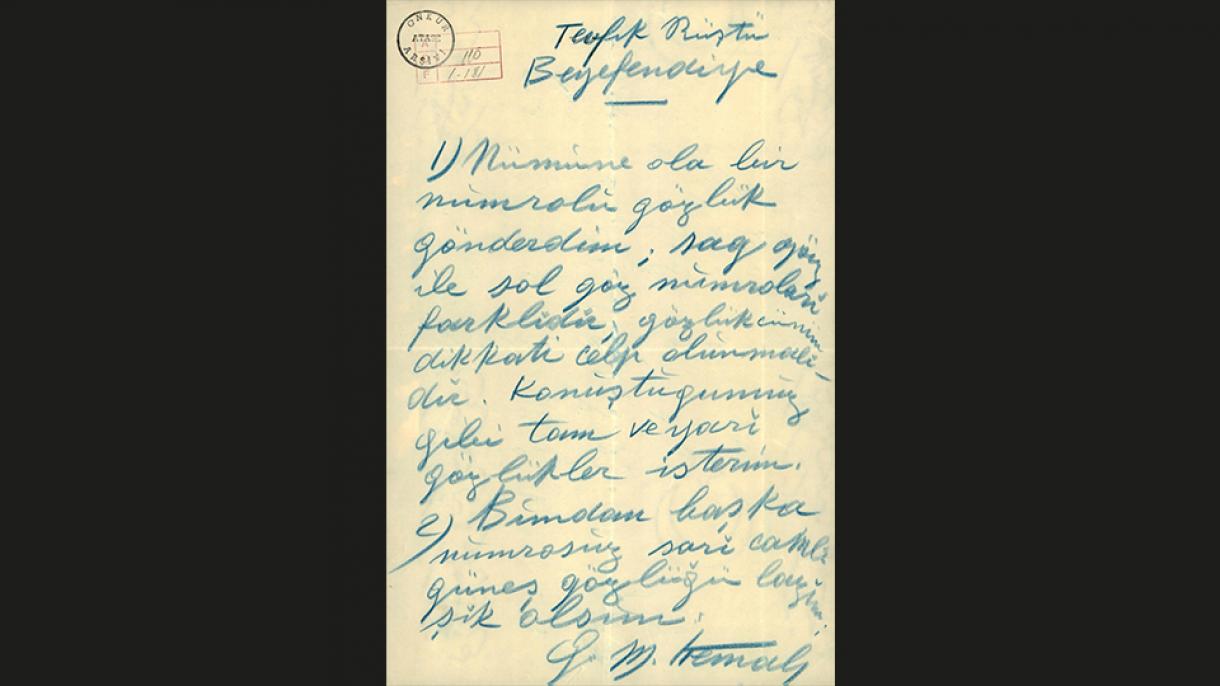 ÖNEUK
ATATÜRK
ARŞİVİ
A
110
F 1-181
Tevfik Rüştü
Beyefendiye
1) Nümüne ola bir
nümrolü gözlük
gönderdim; sag göz
ile sol göz nümrolari
farklidir; gözlükcünün
dikkati celp olünmali-
dir. Konüştügümüz
gibi tam veyari
gözlükler isterim.
2) Bündan başka
nümrosüz sari camli
güneş gözlüğü lazim;
şik olsün.
G. M. Kemal